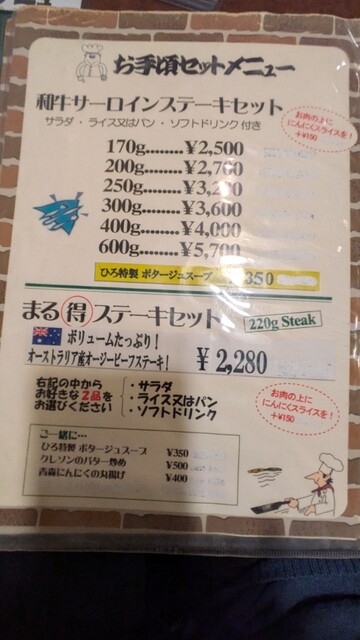 お手頃セットメニュー
和牛サーロインステーキセット
サラダ・ライス又はパン・ソフトドリンク付き
お肉の上に
にんにくスライスを!
+¥150
170g.........¥2,500
200g.........¥2,700
250g.........¥3,2
300g.........¥3,600
400g.........¥4,000
600g.........¥5,700
ひろ特製 ポタージュスープ ¥350
まる得ステーキセット
220g Steak
ボリュームたっぷり!
オーストラリア産オージービーフステーキ!
¥2,280
右記の中から
お好きな2品を
お選びください
・サラダ
・ライス又はパン
・ソフトドリンク
お肉の上に
にんにくスライスを!
+¥150
ご一緒に…
ひろ特製 ポタージュスープ ¥350
クレソンのバター炒め ¥500
青森にんにくの丸揚げ ¥400